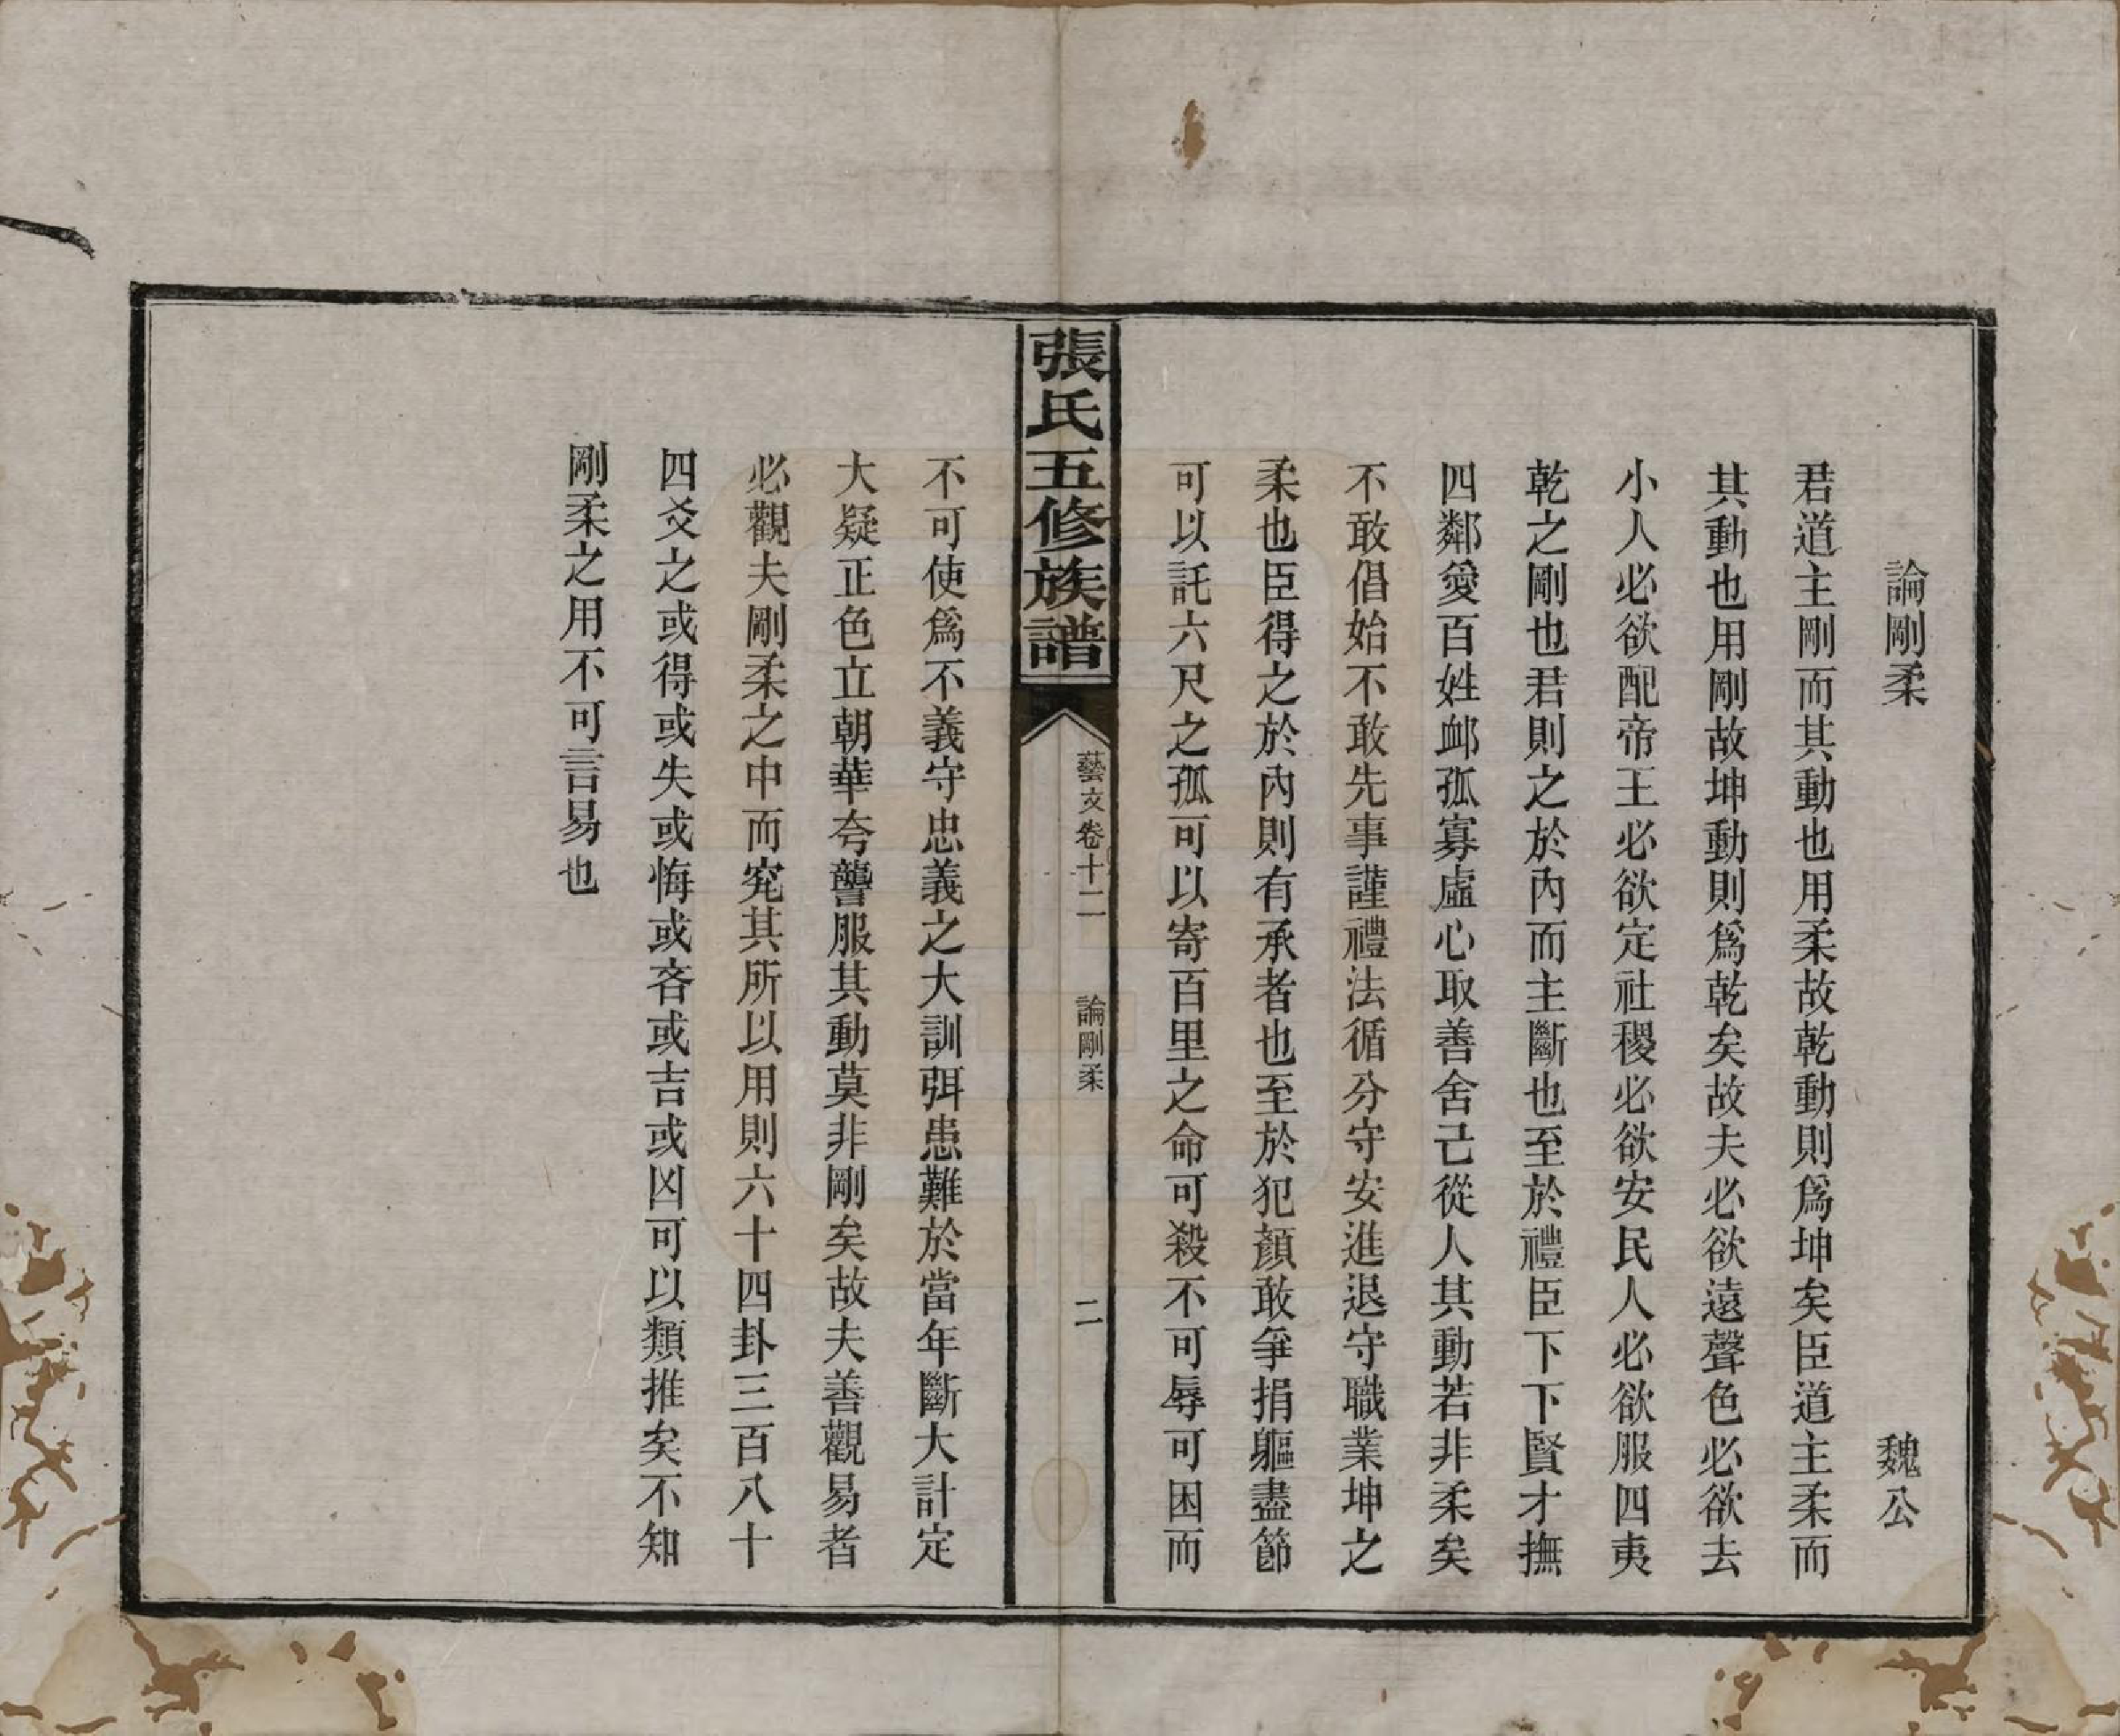 論剛柔　魏公
君道主剛而其動也用柔故乾動則爲坤矣臣道主柔而
其動也用剛故坤動則爲乾矣故夫必欲遠聲色必欲去
小人必欲配帝王必欲定社稷必欲安民人必欲服四夷
乾之剛也君則之於內而主斷也至於禮臣下下賢才撫
四鄰愛百姓卹孤寡虛心取善舍己從人其動若非柔矣
不敢倡始不敢先事謹禮法循分守安進退守職業坤之
柔也臣得之於內則有承者也至於犯顏敢爭捐軀盡節
可以託六尺之孤可以寄百里之命可殺不可辱可困而
張氏五修族譜
藝文卷十二　論剛柔　二
不可使爲不義守忠義之大訓弭患難於當年斷大計定
大疑正色立朝華夸讋服其動莫非剛矣故夫善觀易者
必觀夫剛柔之中而究其所以用則六十四卦三百八十
四爻之或得或失或悔或吝或吉或凶可以類推矣不知
剛柔之用不可言易也